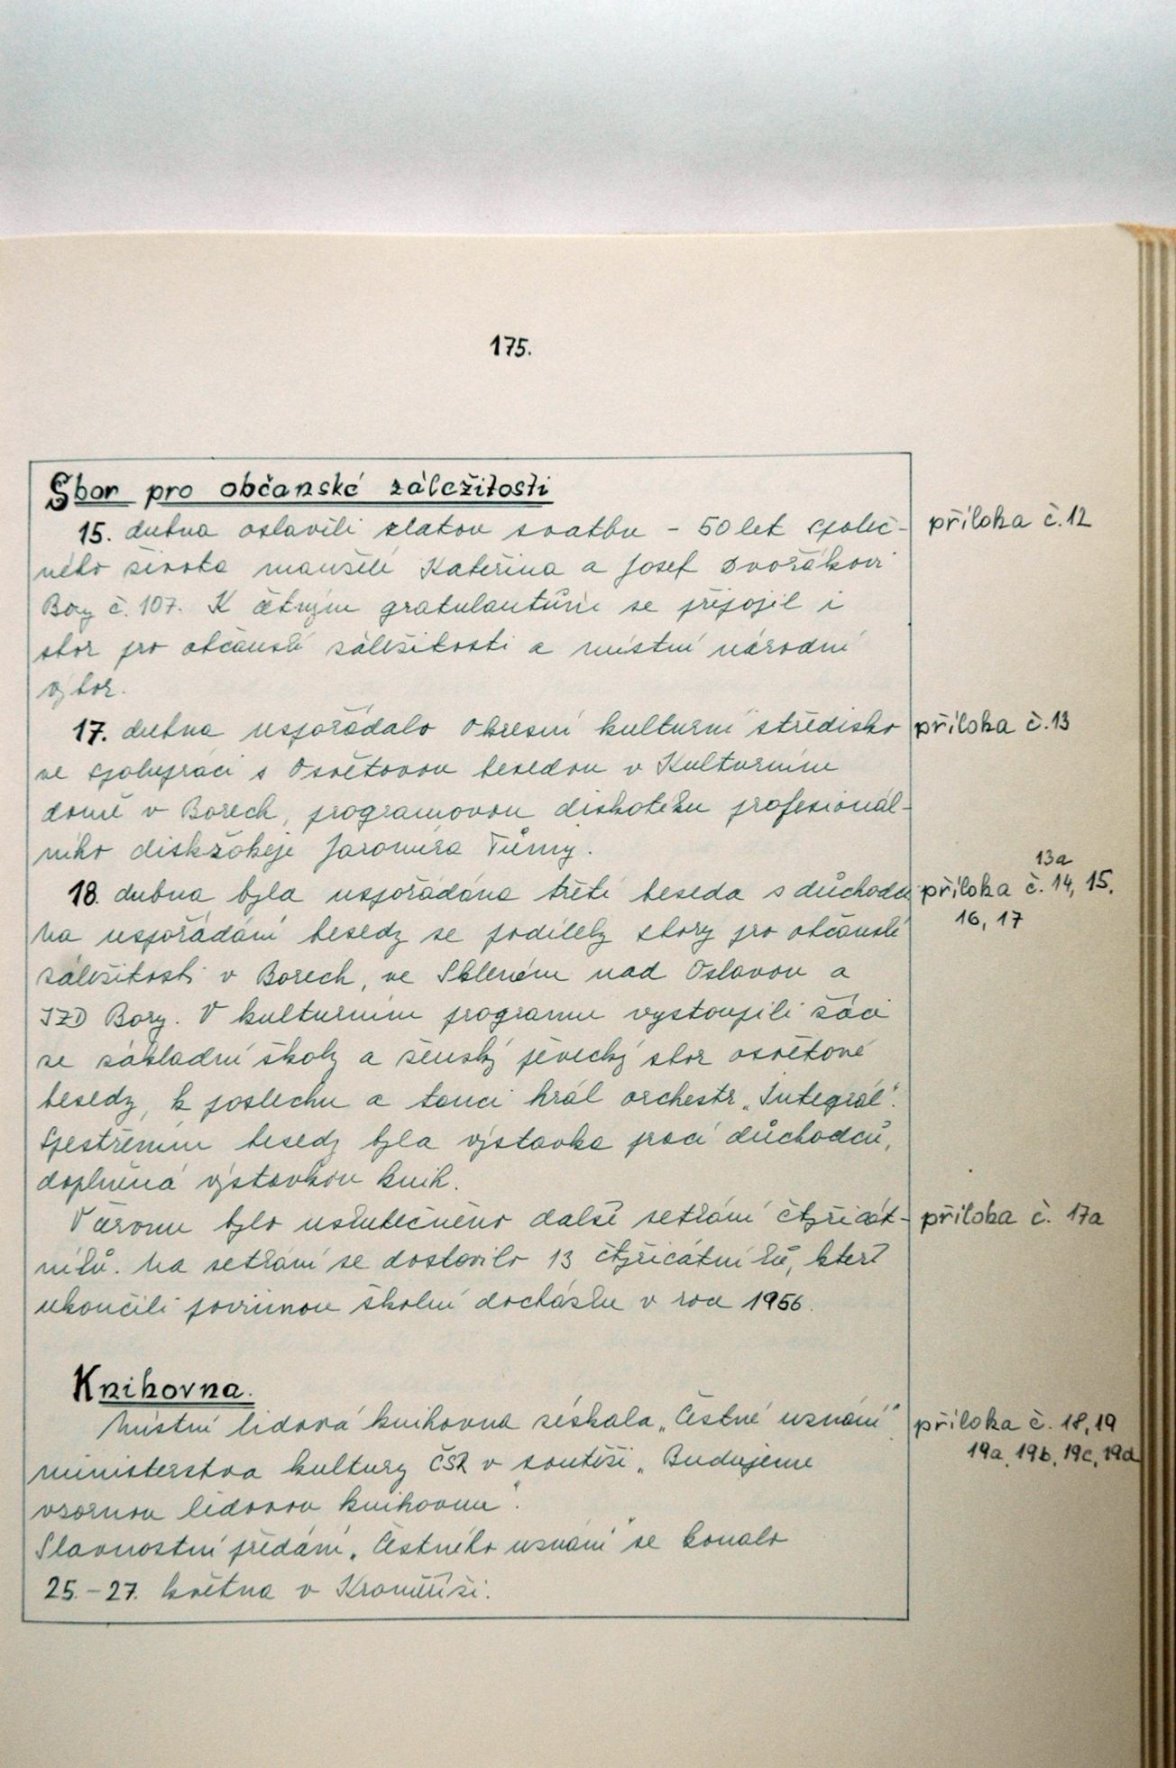 175.
Sbor pro občanské záležitosti
15. dubna oslavili zlatou svatbu - 50 let společ- příloha č. 12
ného života manželé Kateřina a Josef Dvořákovi
Bory č. 107. K četným gratulantům se připojil i
sbor pro občanské záležitosti a místní národní
výbor.
17. dubna uspořádalo Okresní kulturní středisko příloha č. 13
ve spolupráci s Osvětovou besedou v Kulturním
domě v Borech, programovou diskoteku profesionál-
ního diskžokeje Jaromíra Tůmy.
13a
18. dubna byla uspořádána třetí beseda s důchodci příloha č. 14, 15,
Na uspořádání besedy se podílely sbory pro občanské 16, 17
záležitosti v Borech, ve Skleném nad Oslavou a
JZD Bory. V kulturním programu vystoupili žáci
ze základní školy a ženský pěvecký sbor osvětové
besedy, k poslechu a tanci hrál orchestr „Integrál".
Zpestřením besedy byla výstavka prací důchodců,
doplněná výstavkou knih.
V červnu bylo uskutečněno další setkání čtyřicát- příloha č. 17a
níků. Na setkání se dostavilo 13 čtyřicátníků, kteří
ukončili povinnou školní docházku v roce 1956.
Knihovna.
Místní lidová knihovna získala „Čestné uznání" příloha č. 18, 19
ministerstva kultury ČSR v soutěži „Budujeme 19a, 19b, 19c, 19d
vzornou lidovou knihovnu".
Slavnostní předání „Čestného uznání" se konalo
25.-27. května v Kroměříži.